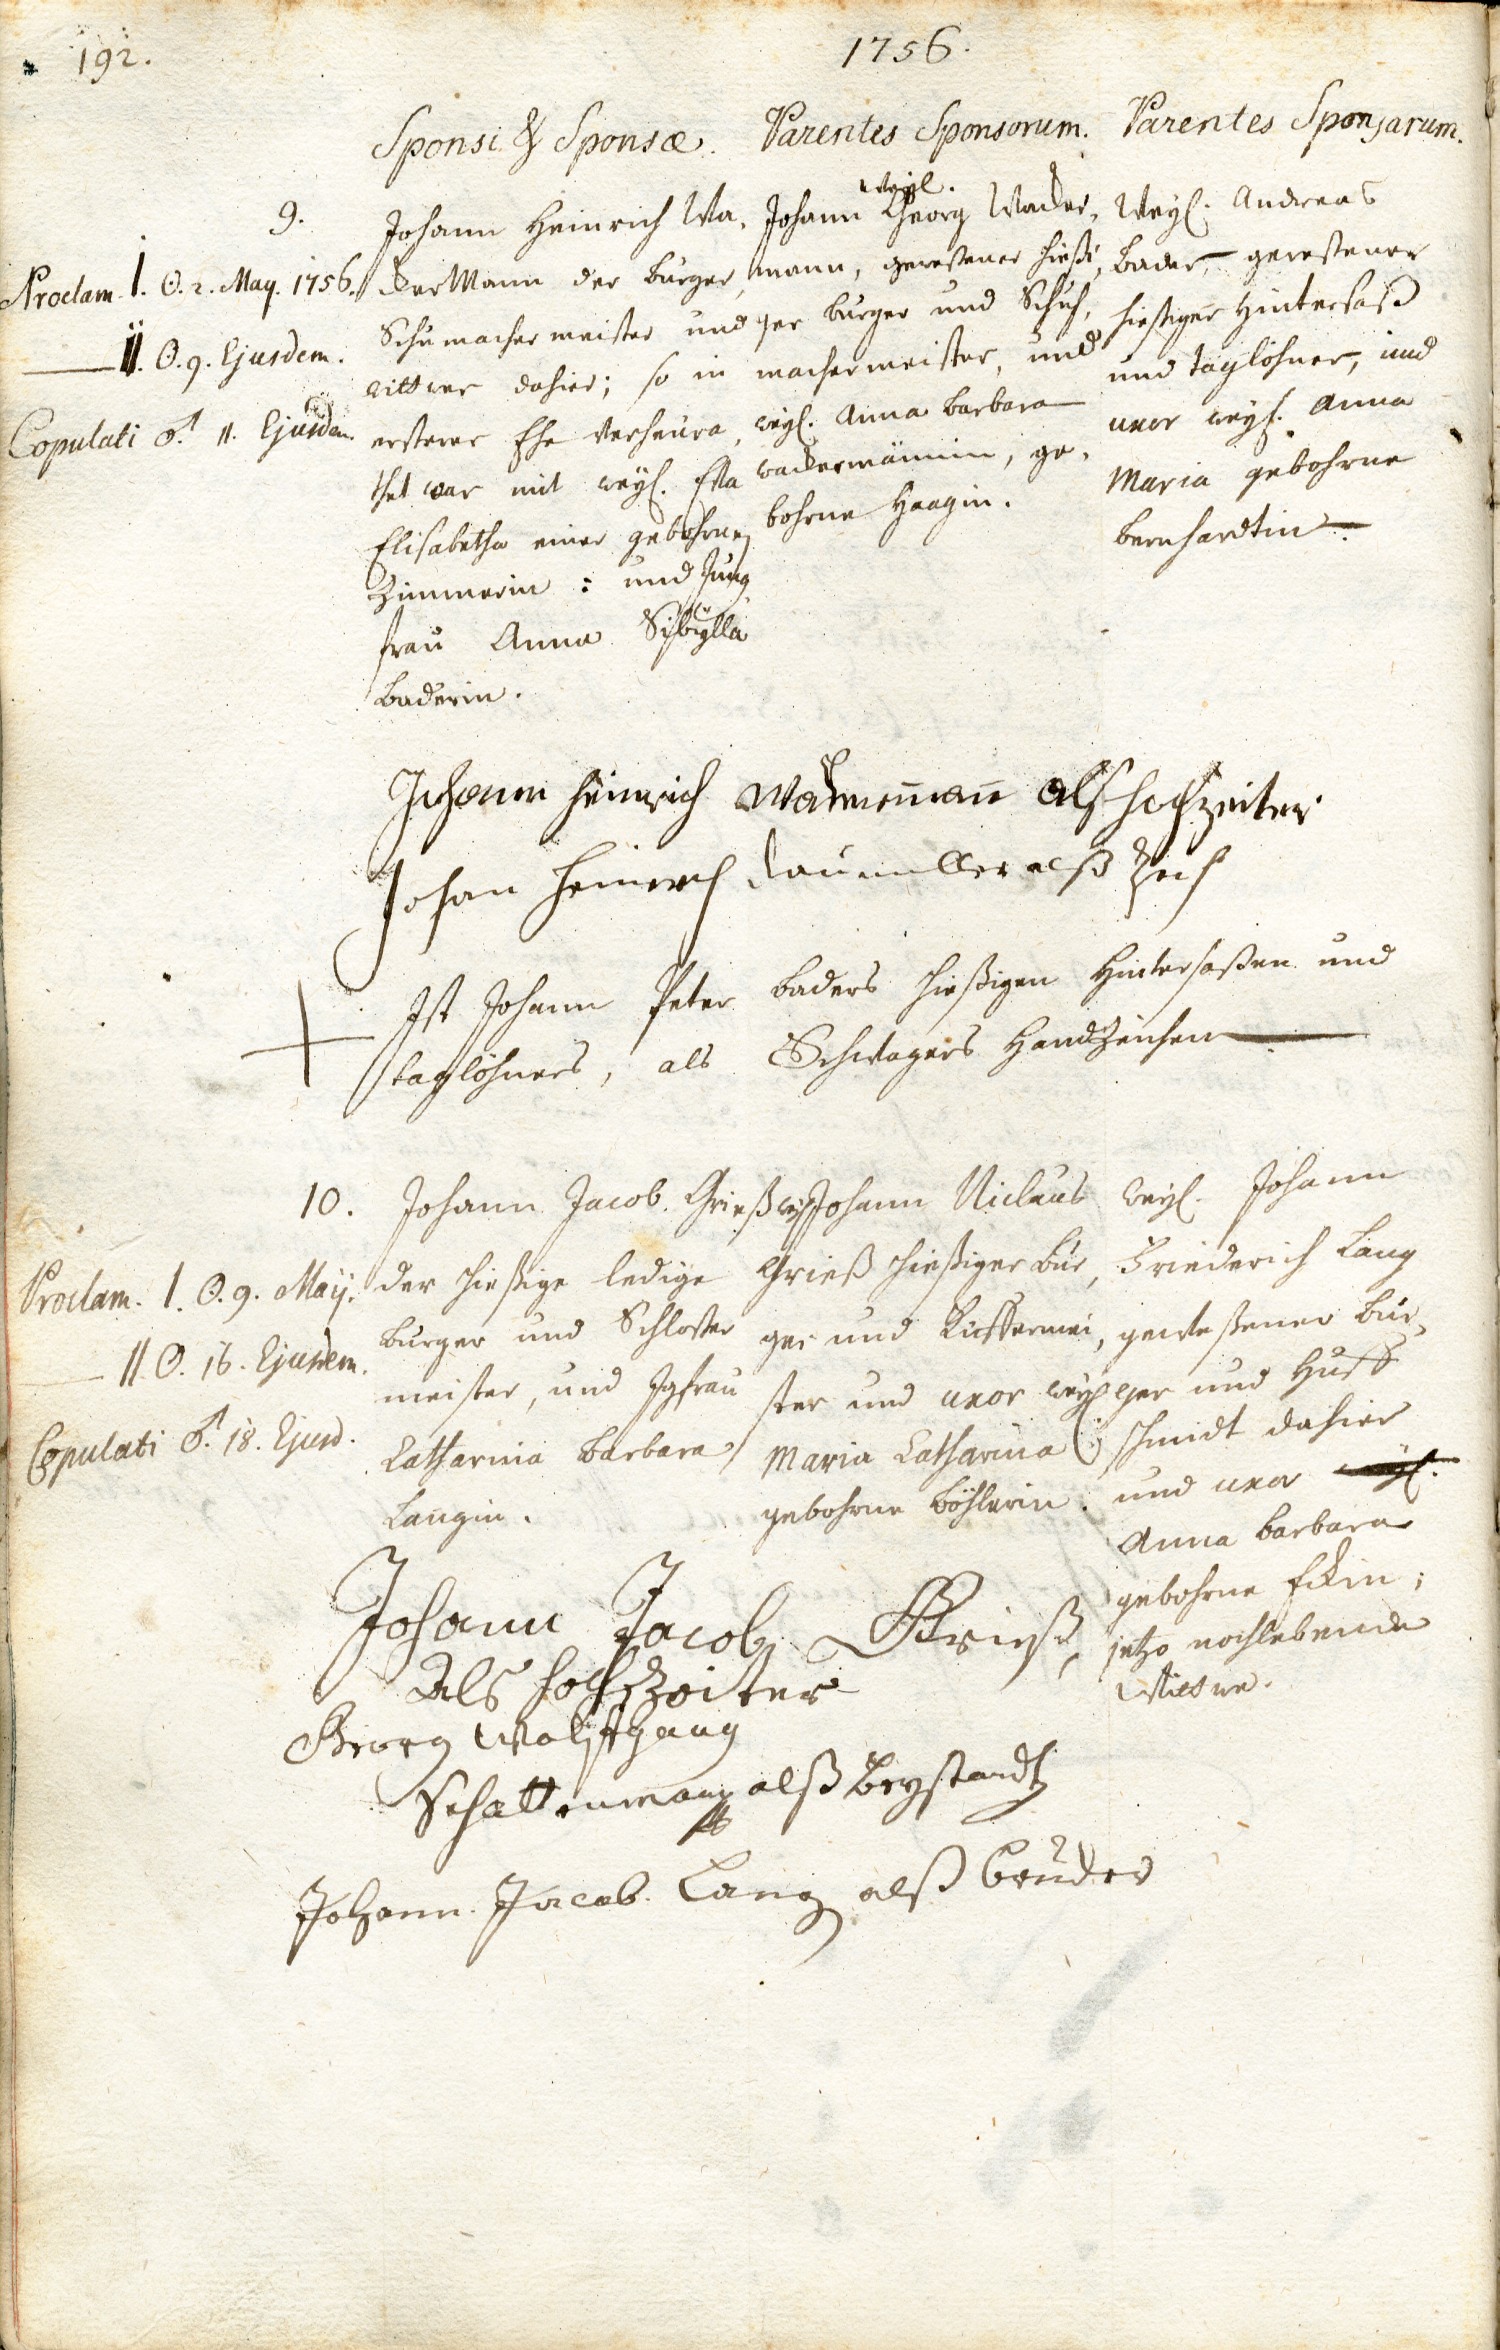 192.
1756.
Sponsi & Sponsæ.
Parentes Sponsorum.
Parentes Sponsarum.
9.
Proclam. I. ☉. 2. May. 1756.
II. ☉. 9. Ejusdem.
Copulati ♂. 11. Ejusdem.
Johann Heinrich Wa-
ckerMann der burger,
Schumacher meister und
wittwer dahier; so in
ersterer Ehe verheura-
thet war mit weyl. Eva
Elisabetha einer gebohrnen
Zimmerin : und Jung
frau Anna Sibÿlla
Baderin.
weyl.
Johann Georg Wacker-
mann, gewesener hießi-
ger burger und Schuh-
machermeister, und
weyl. Anna Barbara
wackermännin, ge-
bohrne Haagin.
Weyl. Andreas
Bader, gewesener
hiesiger Hintersaß
und taglöhner, und
uxor weyl. Anna
Maria gebohrne
Bernhardtin.
Johann Heinrich Wackermann als Hochzeiter
Johan Heinrich Daumüller alß Zeich
Ist Johann Peter Baders hießigen Hintersaßen und
taglöhners, als Schwagers Handzeichen
10.
Proclam. I. ☉. 9. Maÿ.
II. ☉. 16. Ejusdem.
Copulati ♂. 18. Ejusd.
Johann Jacob Grieß
der hießige ledige
burger und Schlosser
meister, und Jgfrau
Catharina Barbara
Langin.
weyl. Johann Niclaus
Grieß hießiger bur-
ger und Kuffermei-
ster und uxor weyl.
Maria Catharina
gebohrne Böhlerin.
weyl. Johann
Friederich Lang
gewesener bur-
ger und Huff
schmidt dahier
und uxor weyl.
Anna Barbara
gebohrne Eckin;
jetzo nochlebende
Wittwe.
Johann Jacob Grieß
Als Hochzeiter
Georg Wolffgang
Schattenmann alß Beystandt
Johann Jacob Lang alß bruder